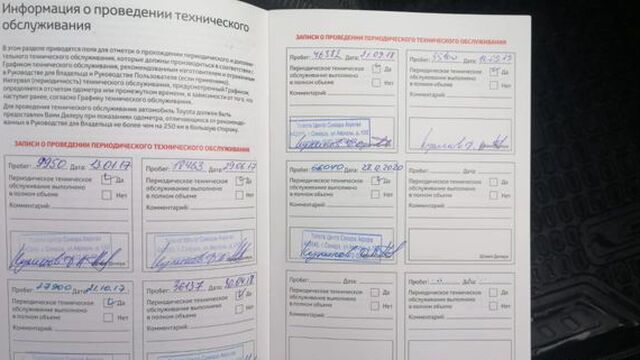 Информация о проведении технического
обслуживания
В этом разделе приводятся поля для отметок о прохождении периодического и дополни-
тельного технического обслуживания, которые должны производиться в соответствии с
Графиком технического обслуживания, рекомендуемым изготовителем и
в Руководстве для Владельца и Руководстве Пользователя (если применимо).
Интервал (периодичность) технического обслуживания, предусмотренный Графиком,
определяется отсчетом одометра или промежутком времени, в зависимости от того, что
наступит ранее, согласно Графику технического обслуживания.
Для проведения технического обслуживания автомобиль Toyota должен быть
предоставлен Вами Дилеру при показаниях одометра, отличающихся от рекомендо-
ванных в Руководстве для Владельца не более чем на 250 км в большую сторону.
ЗАПИСИ О ПРОВЕДЕНИИ ПЕРИОДИЧЕСКОГО ТЕХНИЧЕСКОГО ОБСЛУЖИВАНИЯ
Пробег: 9950 Дата: 13.01.17
Периодическое техническое
обслуживание выполнено
в полном объеме
Да
Нет
Комментарий:
Пробег: 18463 Дата: 29.06.17
Периодическое техническое
обслуживание выполнено
в полном объеме
Да
Нет
Комментарий:
Пробег: 27900 Дата: 21.10.17
Периодическое техническое
обслуживание выполнено
в полном объеме
Да
Нет
Комментарий:
Пробег: 36137 Дата: 30.04.18
Периодическое техническое
обслуживание выполнено
в полном объеме
Да
Нет
Комментарий:
ЗАПИСИ О ПРОВЕДЕНИИ ПЕРИОДИЧЕСКОГО ТЕХНИЧЕСКОГО ОБСЛУЖИВАНИЯ
Пробег: 46382 Дата: 21.09.18
Периодическое техническое
обслуживание выполнено
в полном объеме
Да
Нет
Комментарий:
Тойота Центр Самара Аврора
Пробег: Дата:
Периодическое техническое
обслуживание выполнено
в полном объеме
Да
Нет
Комментарий:
Пробег: 66040 Дата: 28.12.2020
Периодическое техническое
обслуживание выполнено
в полном объеме
Да
Нет
Комментарий:
Тойота Центр Самара Аврора
Пробег: Дата:
Периодическое техническое
обслуживание выполнено
в полном объеме
Да
Нет
Комментарий:
Штамп Дилера
Пробег: Дата:
Периодическое техническое
обслуживание выполнено
в полном объеме
Да
Нет
Комментарий:
Пробег: Дата:
Периодическое техническое
обслуживание выполнено
в полном объеме
Да
Нет
Комментарий: